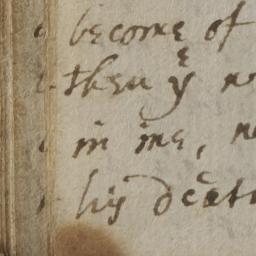 become of
then yͤ no
in me, n
his death